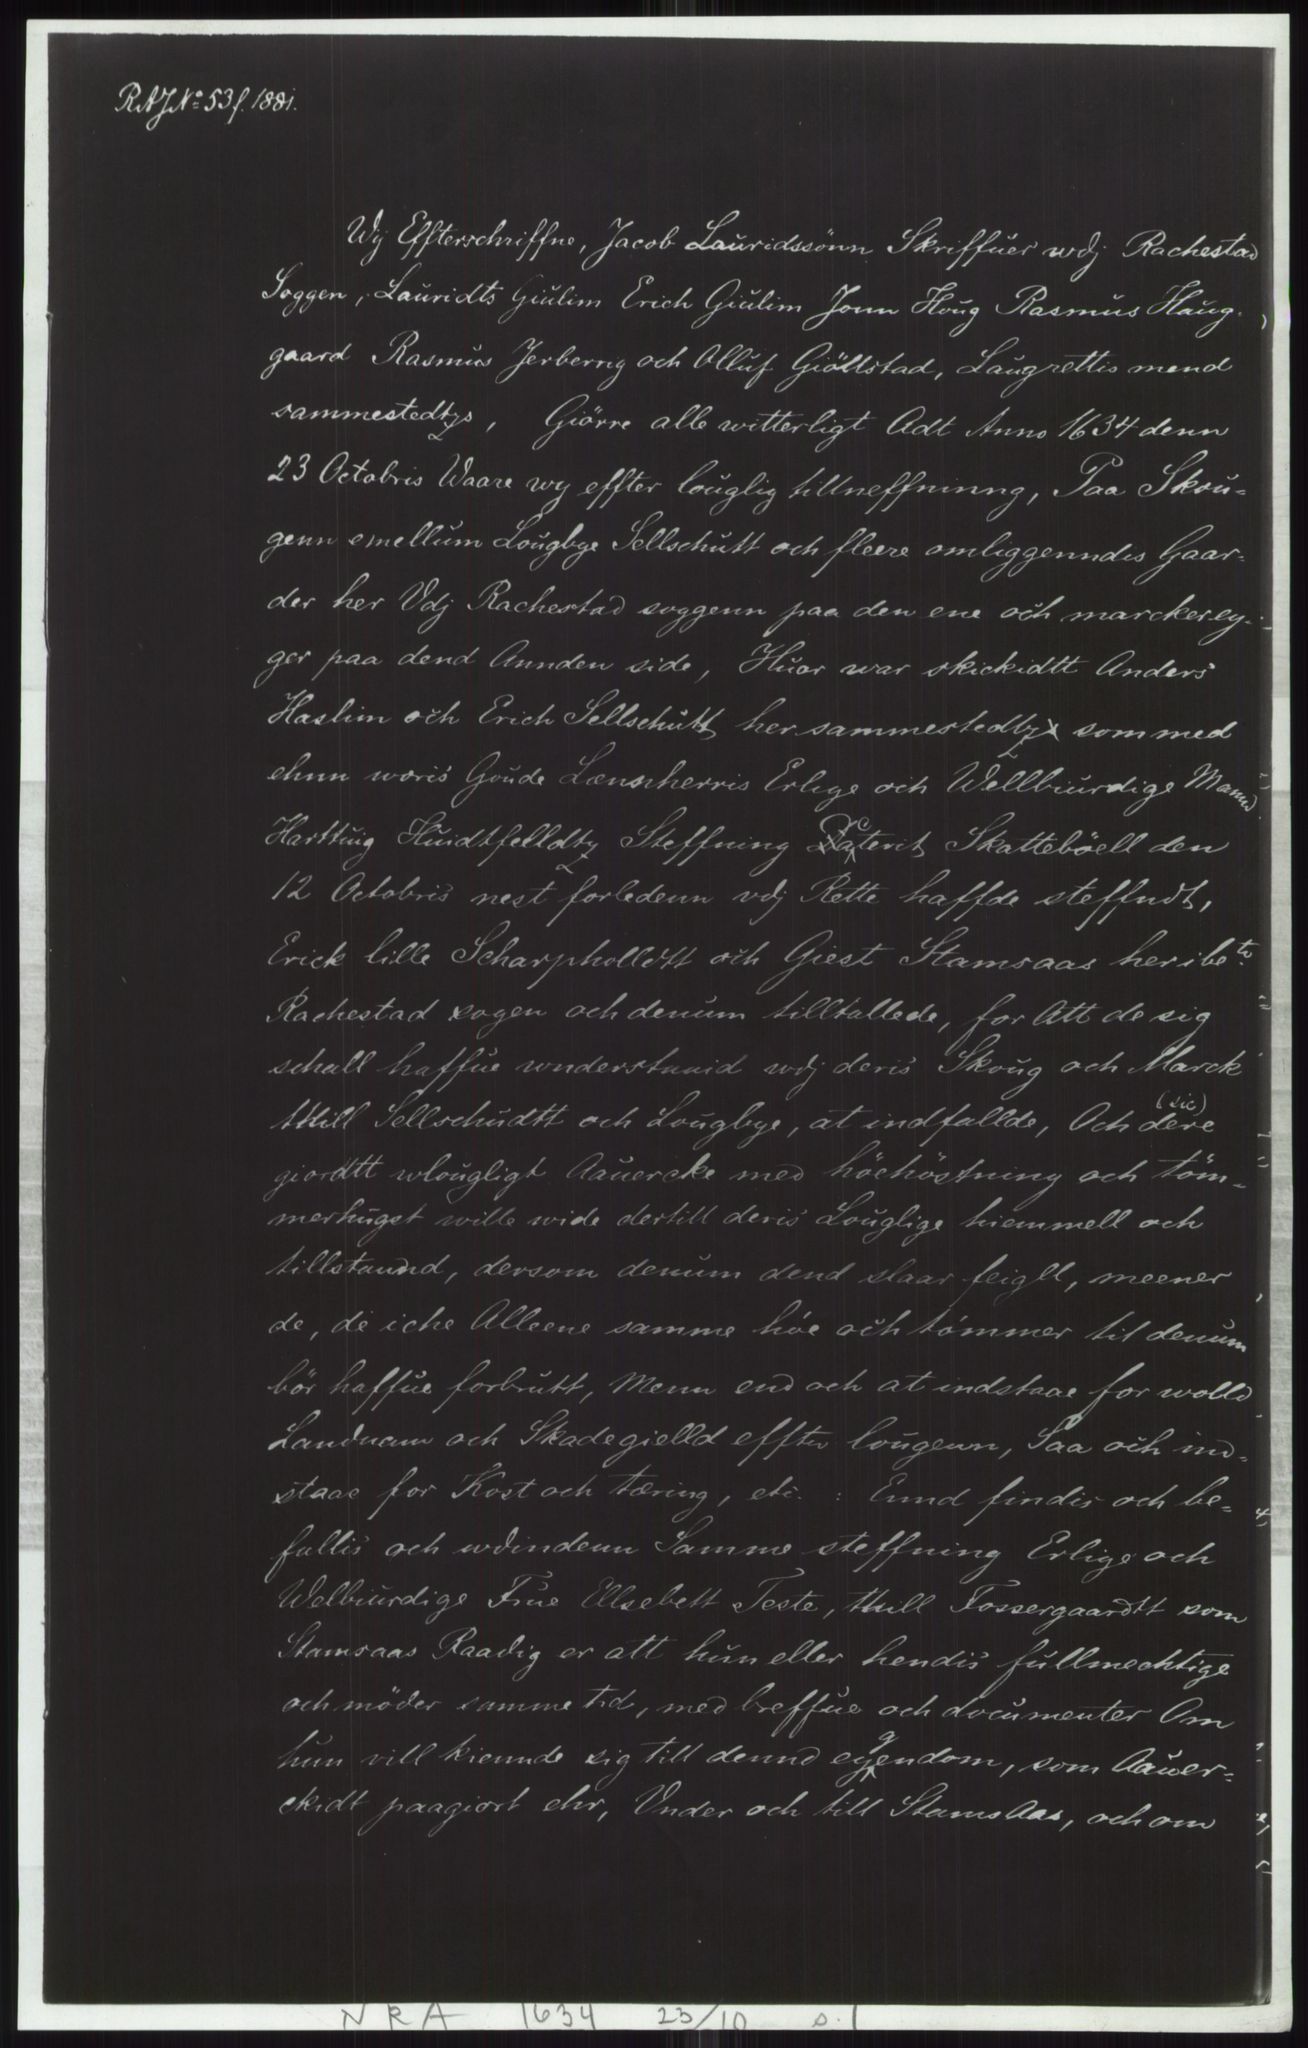 RAJNo 53 f. 1881.
Wij Effterschriffne, Jacob Lauridssönn Skriffuer wdj Rachestad
Soggen, Lauridts Giulim Erich Giulim Jonn Houg Rasmus Haug-
gaard Rasmus Jerberrig och Olluf Giöllstad, Laugrettis mend
sammestedtzs, Giörre alle witterligt Adt Anno 1634 denn
23 Octobris Waare wy effter louglig tillneffninng, Paa Skou-
genn emellum Lougbye Sellschutt och fleere omliggenndis Gaar-
der her Vdj Rachestad soggenn paa den ene och marckerey-
ger paa dend Annden side, Huor war skickidtt Anders
Haslim och Erich Sellschutt her sammestedtz som med
ehnn woris Goude Lænnsherris Erlige och Wellbiurdige Mannd
Harttuig Huidtfelldtz Steffning Daterit Skatteböell den
12 Octobris nest forledenn vdj Rette haffde steffndt,
Erick lille Scharpholldtt och Giest Stamsaas her ibete
Rachestad sogen och denum tilltallede, for Att de sig
schall haffue wnderstaaid wdj deris Skoug och Marck
thill Sellschudtt och Lougbye, at indfallde, Och dere
(sic)
giordtt wlougligt Aauercke med höehöstning och töm-
merhugst wille wide dertill deris Louglige hiemmell och
tillstannd, dersom denum dend slaar feigll, meener
de, de iche Alleene samme höe och tömmer til denum
bör haffue forbrutt, Menn end och at indstaae for wolld
Landnam och Skadegielld effter lougenn, Saa och ind-
staae for Kost och tæring, etc. : Ennd findis och be-
fallis och wdindenn Samme steffning Erlige och
Welbiurdige Frue Ellsebett Teste, thill Fossergaardtt som
Stamsaas Raadig er att hun eller hendis fullmechtige
och möder samme tid, med breffue och documenter Om
hun vill kiennde sig till dennd eygendom, som Aauer-
ckidt paagiort ehr, Vnder och till StamsAas, och om
NRA 1634 23/10 s. 1